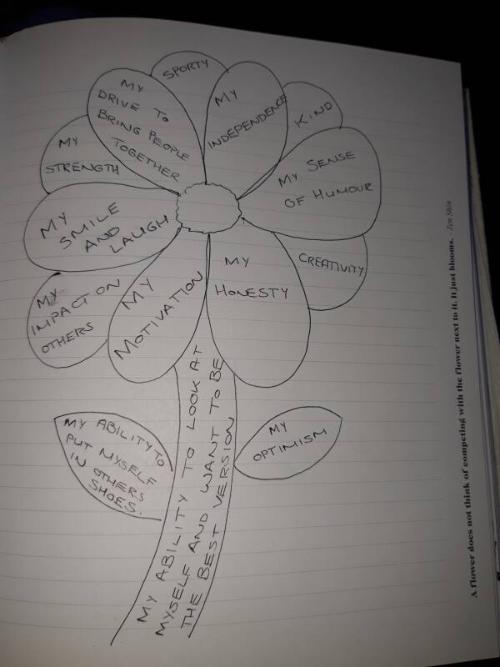 SPORTY
MY
DRIVE TO
BRING PEOPLE
TOGETHER
MY
INDEPENDENCE
KIND
MY
STRENGTH
MY SENSE
OF HUMOUR
MY
SMILE
AND
LAUGH
CREATIVITY
MY
HONESTY
MY
IMPACT ON
OTHERS
MY
MOTIVATION
MY ABILITY TO
PUT MYSELF
IN OTHERS
SHOES.
MY
OPTIMISM
MY ABILITY TO LOOK AT
MYSELF AND WANT TO BE
THE BEST VERSION
A flower does not think of competing with the flower next to it. It just blooms. - Zen Shin